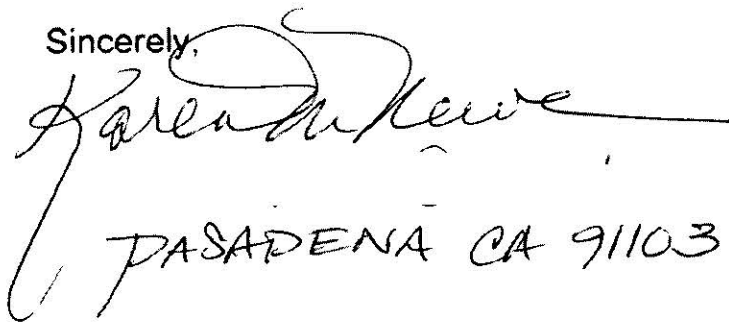 Sincerely,
Karen
PASADENA CA 91103